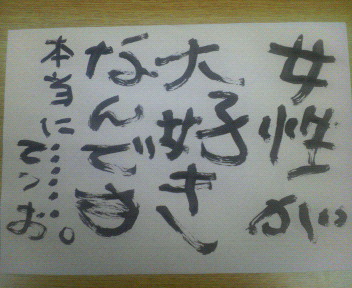 女性が
大好き
なんで
本当に……。
てつお